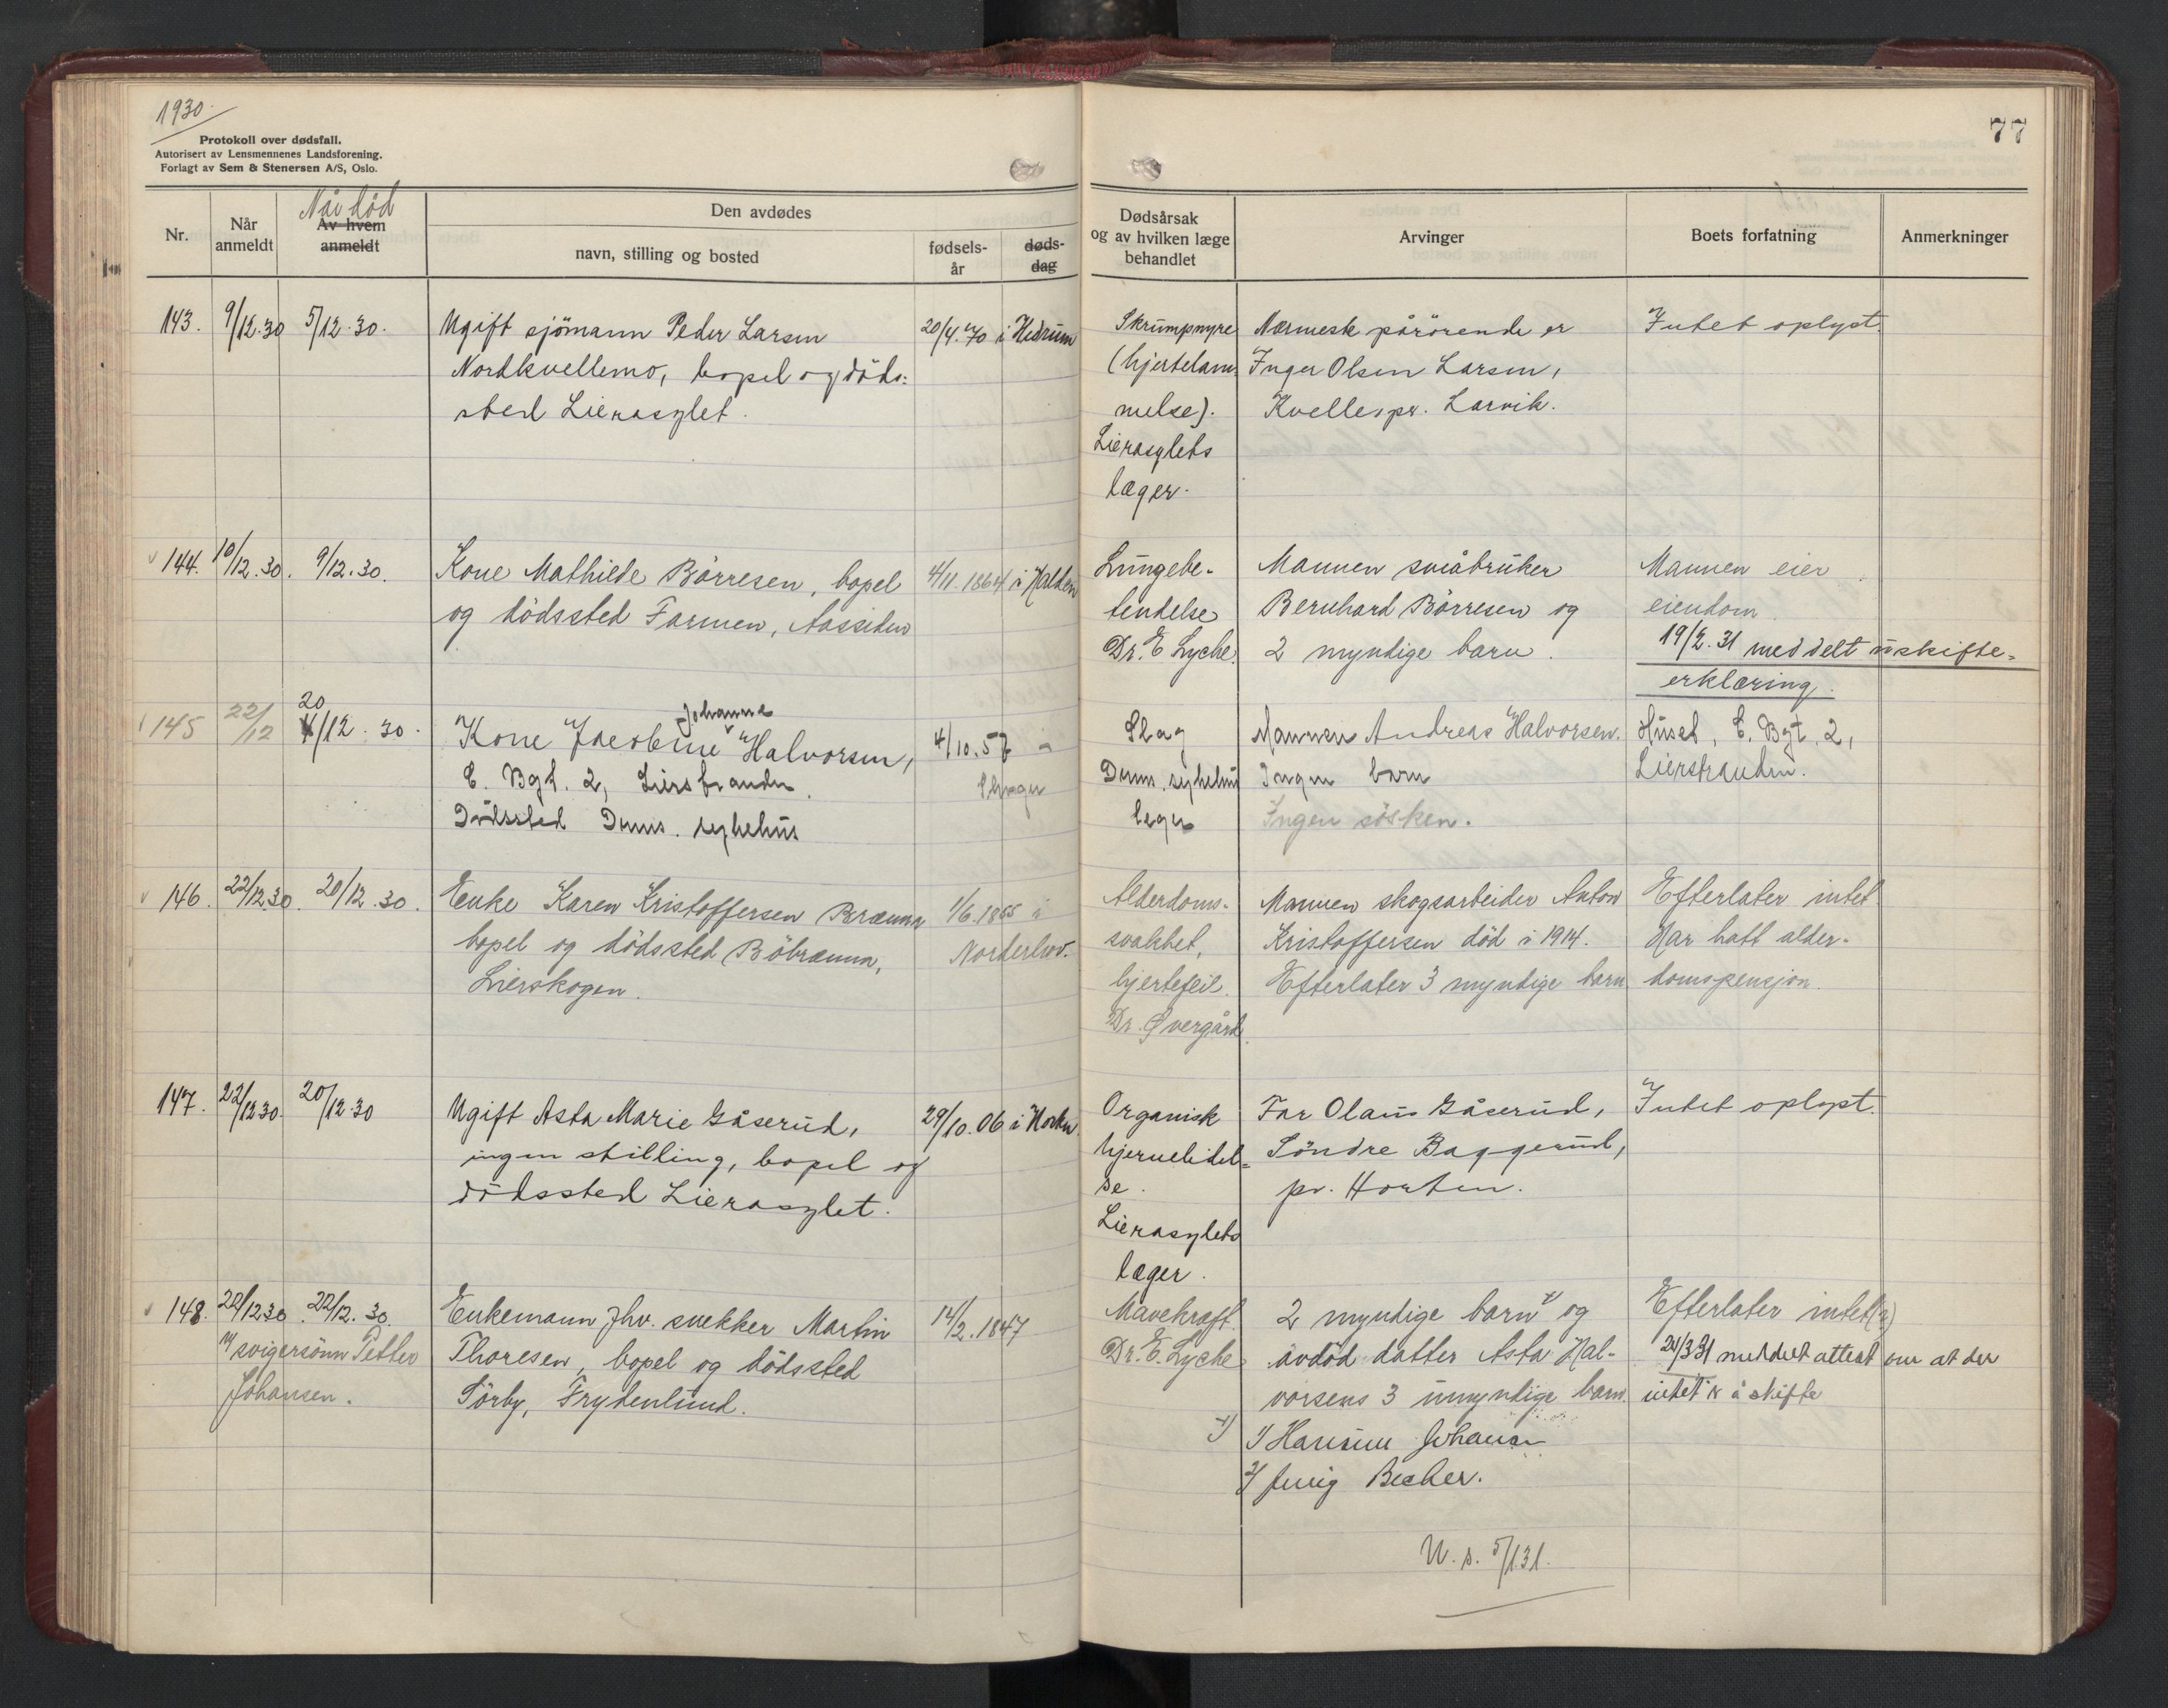 1930.
Protokoll over dødsfall.
Autorisert av Lensmennenes Landsforening.
Forlagt av Sem & Stenersen A/S, Oslo.
77
Nr.
Når anmeldt
Når död
Av hvem anmeldt
Den avdødes
navn, stilling og bosted
fødsels-
år
døds-
dag
Dødsårsak
og av hvilken læge
behandlet
Arvinger
Boets forfatning
Anmerkninger
143. 9/12.30 5/12.30. Ugift sjömann Peder Larsen 20/4.70 i Hedrum
Nordkvellemo, bopel og döds-
sted Lierasylet.
Skrumpnyre
(hjertelam-
melse).
Lierasylets
læger.
Nærmeste pårörende er
Inger Olsen Larsen,
Kvelle pr. Larvik.
Intet oplyst.
144. 10/12.30. 9/12.30. Kone Mathilde Börresen, bopel 4/11.1864 i Halden
og dödssted Farmen, Aassiden
Lungebe-
tendelse
Dr. E. Lyche.
Mannen småbruker
Bernhard Börresen og
2 myndige barn.
Mannen eier
eiendom.
19/2.31 meddelt uskifte-
erklæring.
145 22/12 20/12.30. Kone Jacobine Johanne Halvorsen, 4/10.57 i
E. Bgt. 2, Lierstranden.
Dödssted Drms. sykehus
Slag
Drms. sykehus
leger
Mannen Andreas Halvorsen.
Ingen barn
Ingen søsken.
Huset, E. Bgt. 2,
Lierstranden.
146. 22/12.30. 20/12.30. Enke Karen Kristoffersen Brænna 1/6.1855 i
bopel og dödssted Böbrænna, Norderhov.
Lierskogen.
Alderdoms-
svakhet,
hjertefeil.
Dr. Øvergård.
Mannen skogsarbeider Anton
Kristoffersen död i 1914.
Efterlater 3 myndige barn
Efterlater intet
Har hatt alder-
domspensjon.
147. 22/12.30. 20/12.30 Ugift Asta Marie Gåserud, 29/10.06 i Horten.
ingen stilling, bopel og
dödssted Lierasylet.
Organisk
hjernelidel-
se.
Lierasylets
læger.
Far Olaus Gåserud,
Söndre Baggerud,
pr. Horten.
Intet oplyst.
148. 22/12.30. 22/12.30. Enkemann fhv. snekker Martin 14/2.1847
svigersönn Petter Thoresen, bopel og dödssted
Johansen. Sörby, Frydenlund.
Mavekræft.
Dr. E. Lyche
2 myndige barn og
avdöd datter Asta Hal-
vorsens 3 umyndige barn.
1/ Johansen
2/ Becker.
Efterlater intet(?)
meddelt attest om at der
intet er å skifte
U. s. 5/1.31.